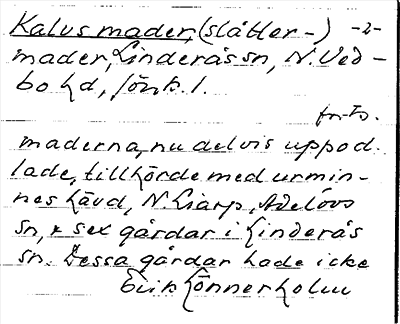 Kalvsmader, (slåtter-) -2-
mader, Linderås sn, N. Ved-
bo hd, Jönk. l.
forts.
maderna, nu delvis uppod.
lade, tillhörde med urmin-
nes hävd, N. Liarp, Adelövs
sn, & sex gårdar i Linderås
sn. Dessa gårdar hade icke
Erik Lönnerholm